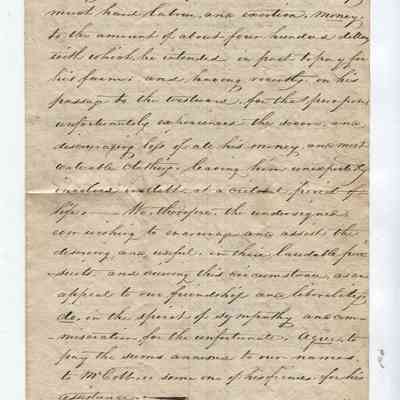 much hard labour, and exertion, money
to the amount of about four hundred dollars
with which, he intended in part to pay for
his farm: and having recently, on his
passage to the westward, for that purpose
unfortunately experienced the severe, and
discouraging loss of all his money, and most
valuable clothing, leaving him unexpectedly
involved in debt, at a critical period of
life. — We, therefore, the undersigned
con wishing to encourage and assist the
deserving and useful, in their laudable pur
suits, and viewing this circumstance, as an
appeal to our friendship and liberality,
do, in the spirit of sympathy and com
miseration for the unfortunate, Agree, to
pay the sums annexed to our names,
to Mr or some one of his friends for his
assistance